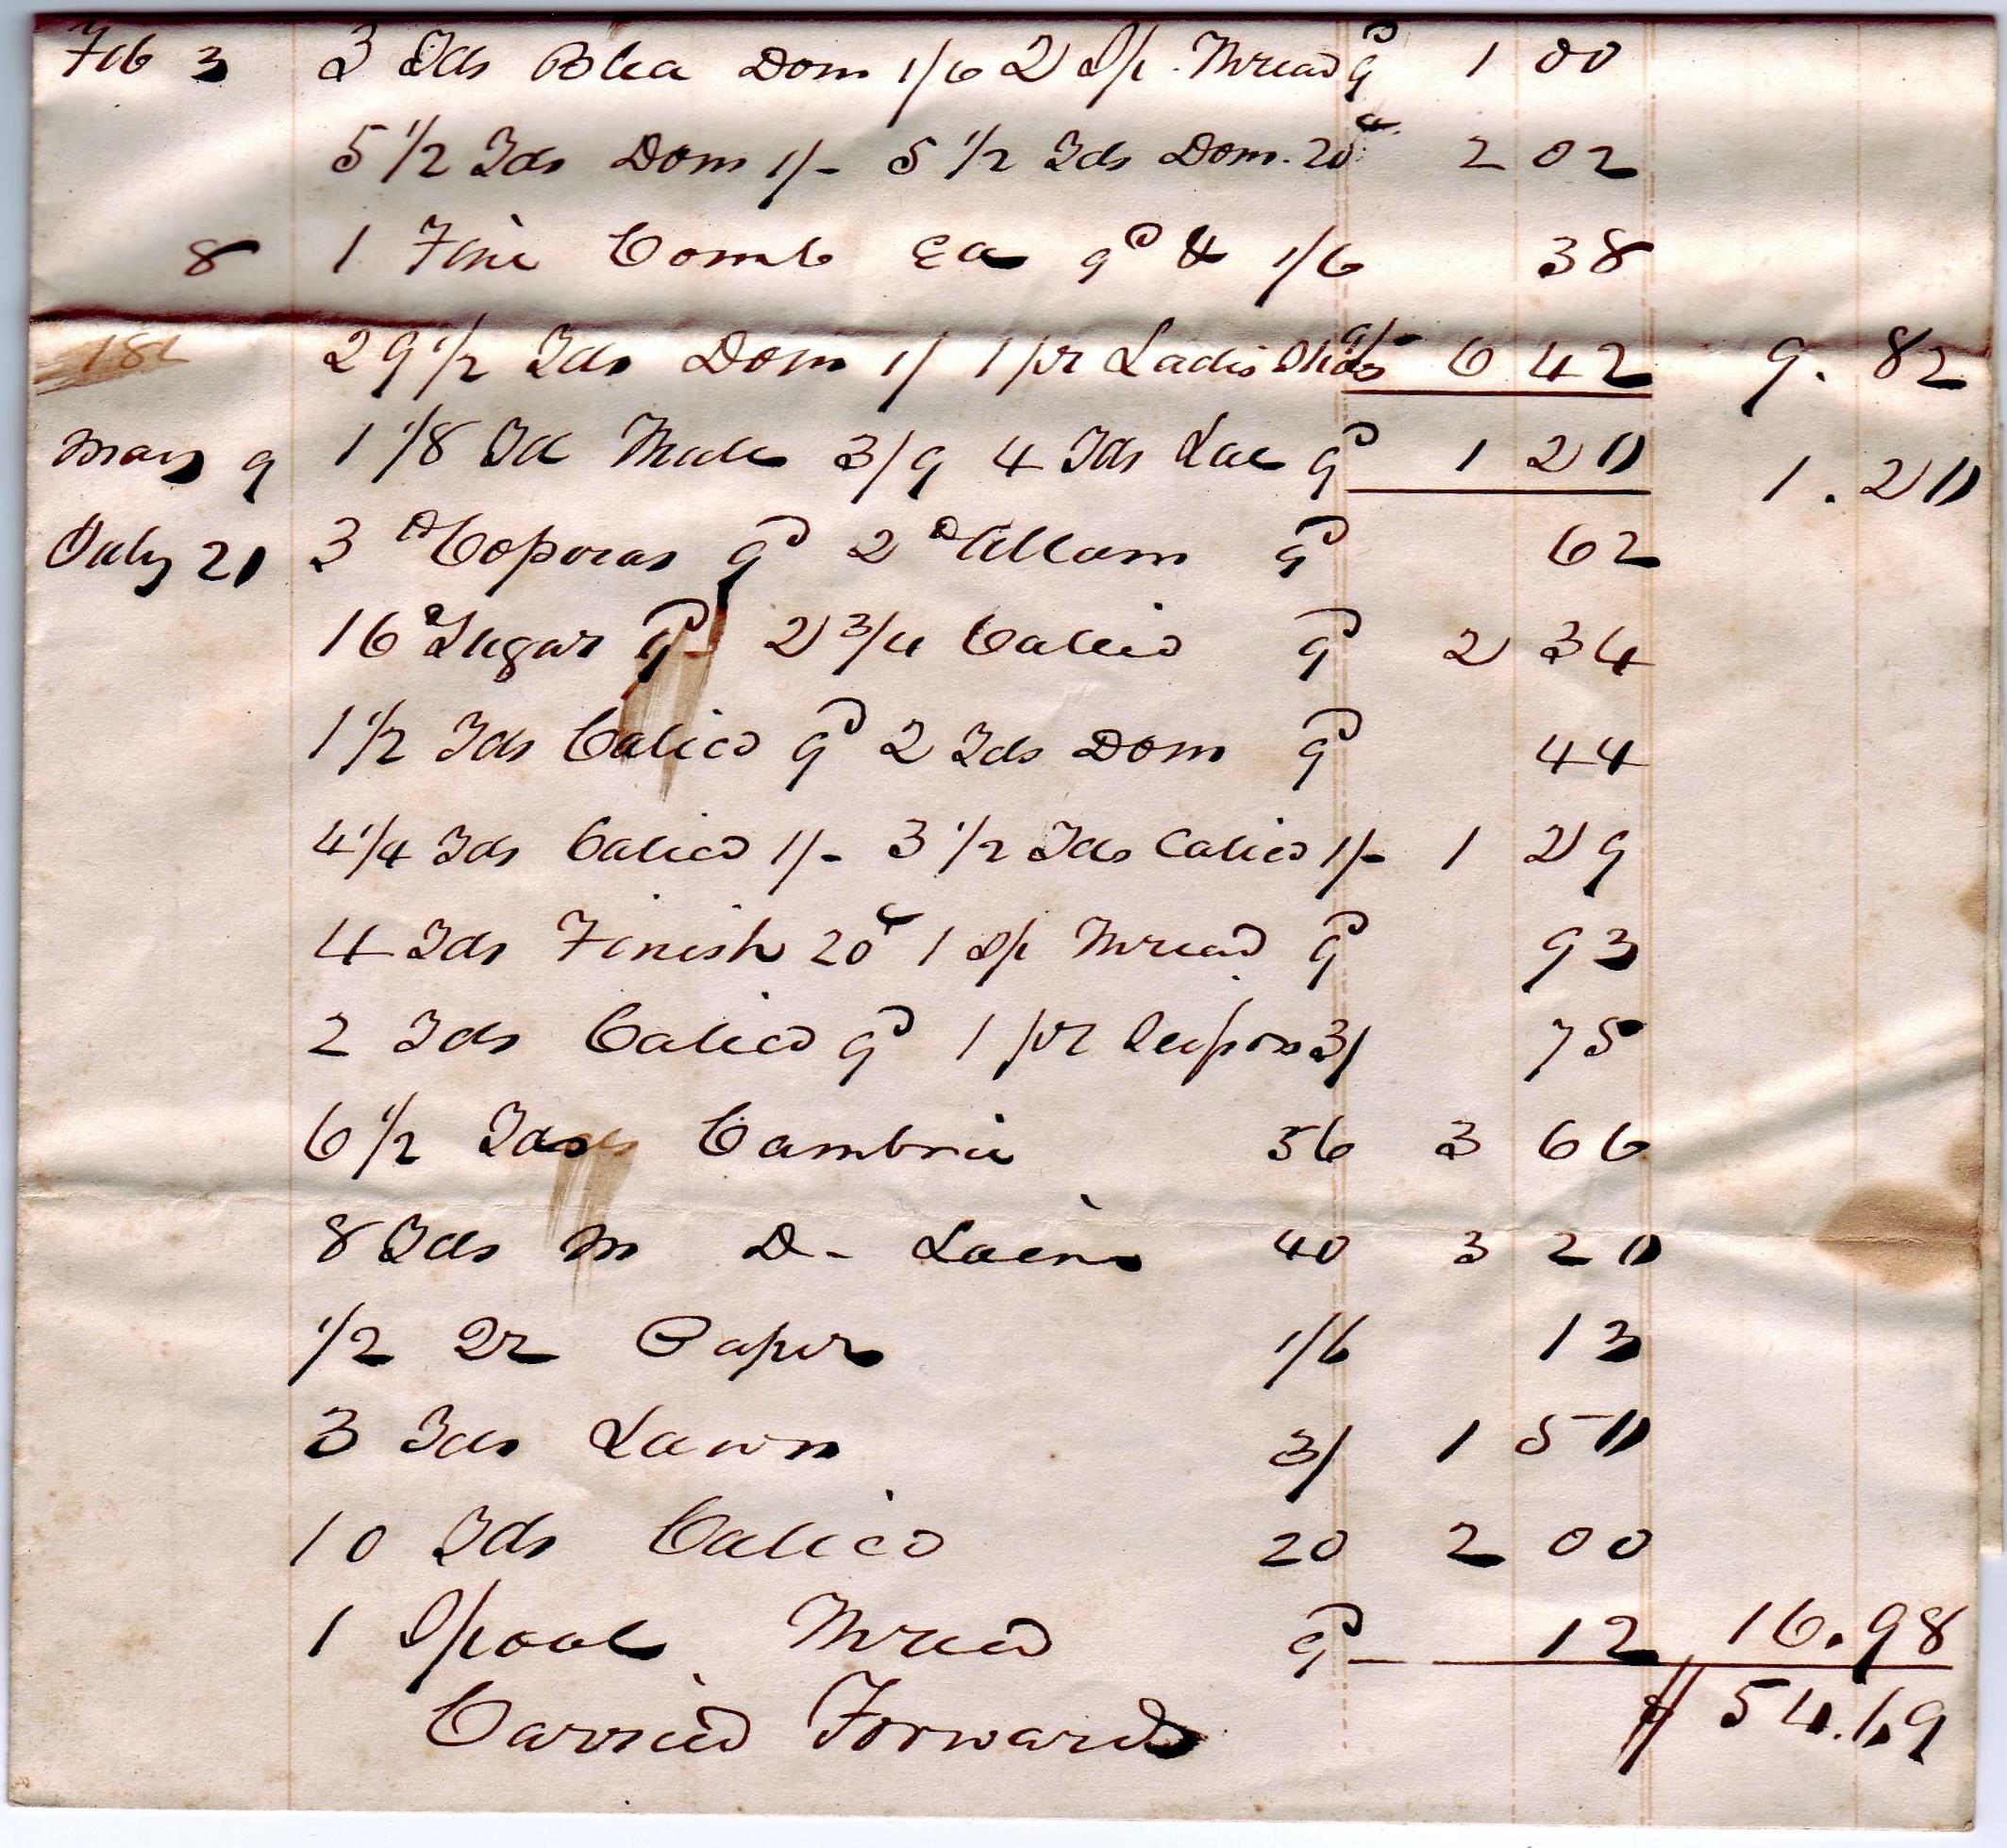 Feb 3 3 Yds Blea Dom 1/6 2 Sp. Thread 9d 1 00
5 1/2 Yds Dom 1/- 5 1/2 Yds Dom. 20c 2 02
8 1 Fine Comb Ea 9d & 1/6 38
29 1/2 Yds Dom 1/ 1 pr Ladis Shos 9/- 6 42 9.82
May 9 1 1/8 Yd 3/9 4 Yds Lace 9d 1 20 1.20
July 20 3 lb Coporas 9d 2 lb Allum 9d 62
16 lb Sugar 9d 2 3/4 Calico 9d 2 34
1 1/2 Yds Calico 9d 2 Yds Dom 9d 44
4 1/4 Yds Calico 1/- 3 1/2 Yds Calico 1/- 1 29
4 Yds Finish 20c 1 Sp Thread 9d 93
2 Yds Calico 9d 1 pr 3/ 75
6 1/2 Yds Cambric 56 3 66
8 Yds M D- Laine 40 3 20
1/2 Qr Paper 1/6 13
3 Yds Lawn 3/ 1 50
10 Yds Calico 20 2 00
1 Spool Thread 9d 12 16.98
Carried Forward $54.69